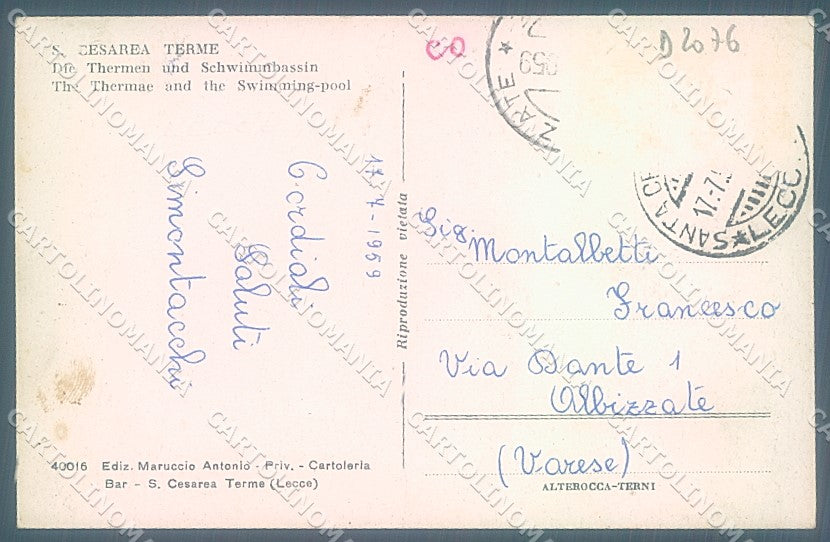 S. CESAREA TERME
Die Thermen und Schwimmbassin
The Thermae and the Swimming-pool
17-7-1959
Cordiali
Saluti
Simontacchi
40016 Ediz. Maruccio Antonio - Priv. - Cartoleria
Bar - S. Cesarea Terme (Lecce)
Riproduzione vietata
CO
D2076
ZATE ★
959
SANTA CE
17-7
★ LECC
Sig. Montalbetti
Francesco
Via Dante 1
Albizzate
(Varese)
ALTEROCCA-TERNI
CARTOLINOMANIA